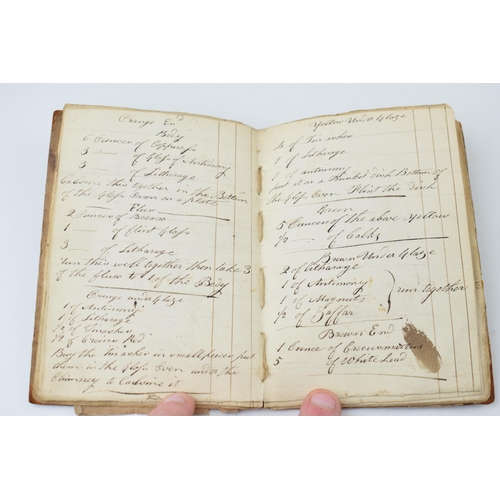 Orange En^d
Body
6 Ounces of Copperas
5 — of Glass of Antimony
5 — of Litharge
Calcine these together in the Bottom
of the Gloss Oven on a plate
Flux
2 Ounces of Borax
1 — of Flint Glass
3 — of Litharge
run these well together then take 3
of the flux to 1 of the Body
Orange under Glaze
1 of Antimony
1 of Litharge
1/2 of Tinashes
1/2 of Crocus Red
Buy the tinashes in small pieces put
them in the Gloss Oven under the
Chimney to Calcine it
Yellow Under Glaze
of Tin ashes
1 of Litharge
1 of antimony
put it in a dish Bottom of
the Gloss Oven Flint the dish
Green
5 Ounces of the above Yellow
1/2 — of Calx
Brown Under Glaze
2 of Litharge
1 of Antimony
1 of Magnus
1/2 of Zaffar
run together
Brown En^d
1 Ounce of
5 of White Lead